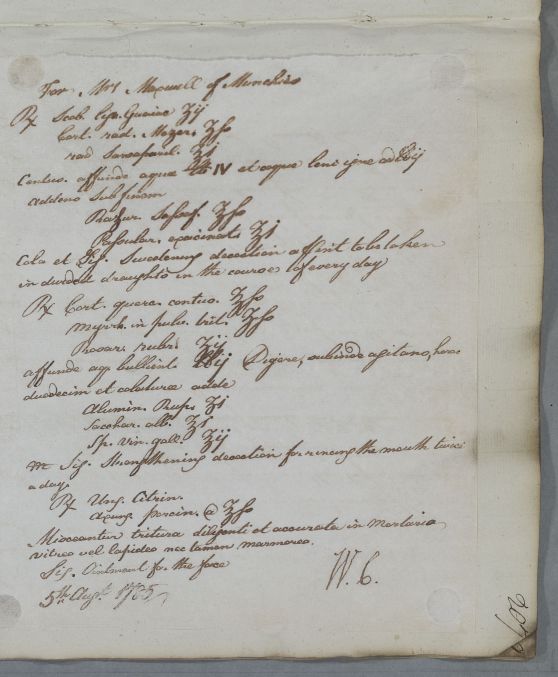 For Mrs Maxwell of Munches
℞ Scob. Lign. Guaiac ℥ij
Cort. rad. Mezer. ℥ſs
rad Sarsaparil. ℥j
Contus. affunde aquæ ℔ IV et coque leni igne ad ℔ij
addens sub finem
Rasur. Sassaf. ℥ſs
Passular. exacinat. ℥j
Cola et Sig. Sweetening decoction a pint to be taken
in divided draughts in the course of every day
℞ Cort. querc. contus. ℥ſs
Myrrh. in pulv. trit. ℥ſs
Rosar. rubr. ℥ij
affunde aq. bullient. ℔ij Digere, subinde agitans, horas
duodecim et colaturæ adde
Alumin. Rup. ʒj
Sacchar. alb. ℥j
Sp. vin. gall. ℥ij
M Sig. Strengthening decoction for rincing the mouth twice
a day.
℞ Ung. Citrin.
Axung. porcin. @ ℥ſs
Misceantur tritura diligenti et accurata in mortario
vitreo vel lapideo nec tamen marmoreo.
Sig. Ointment for the face
5th Augt. 1785
W. C.